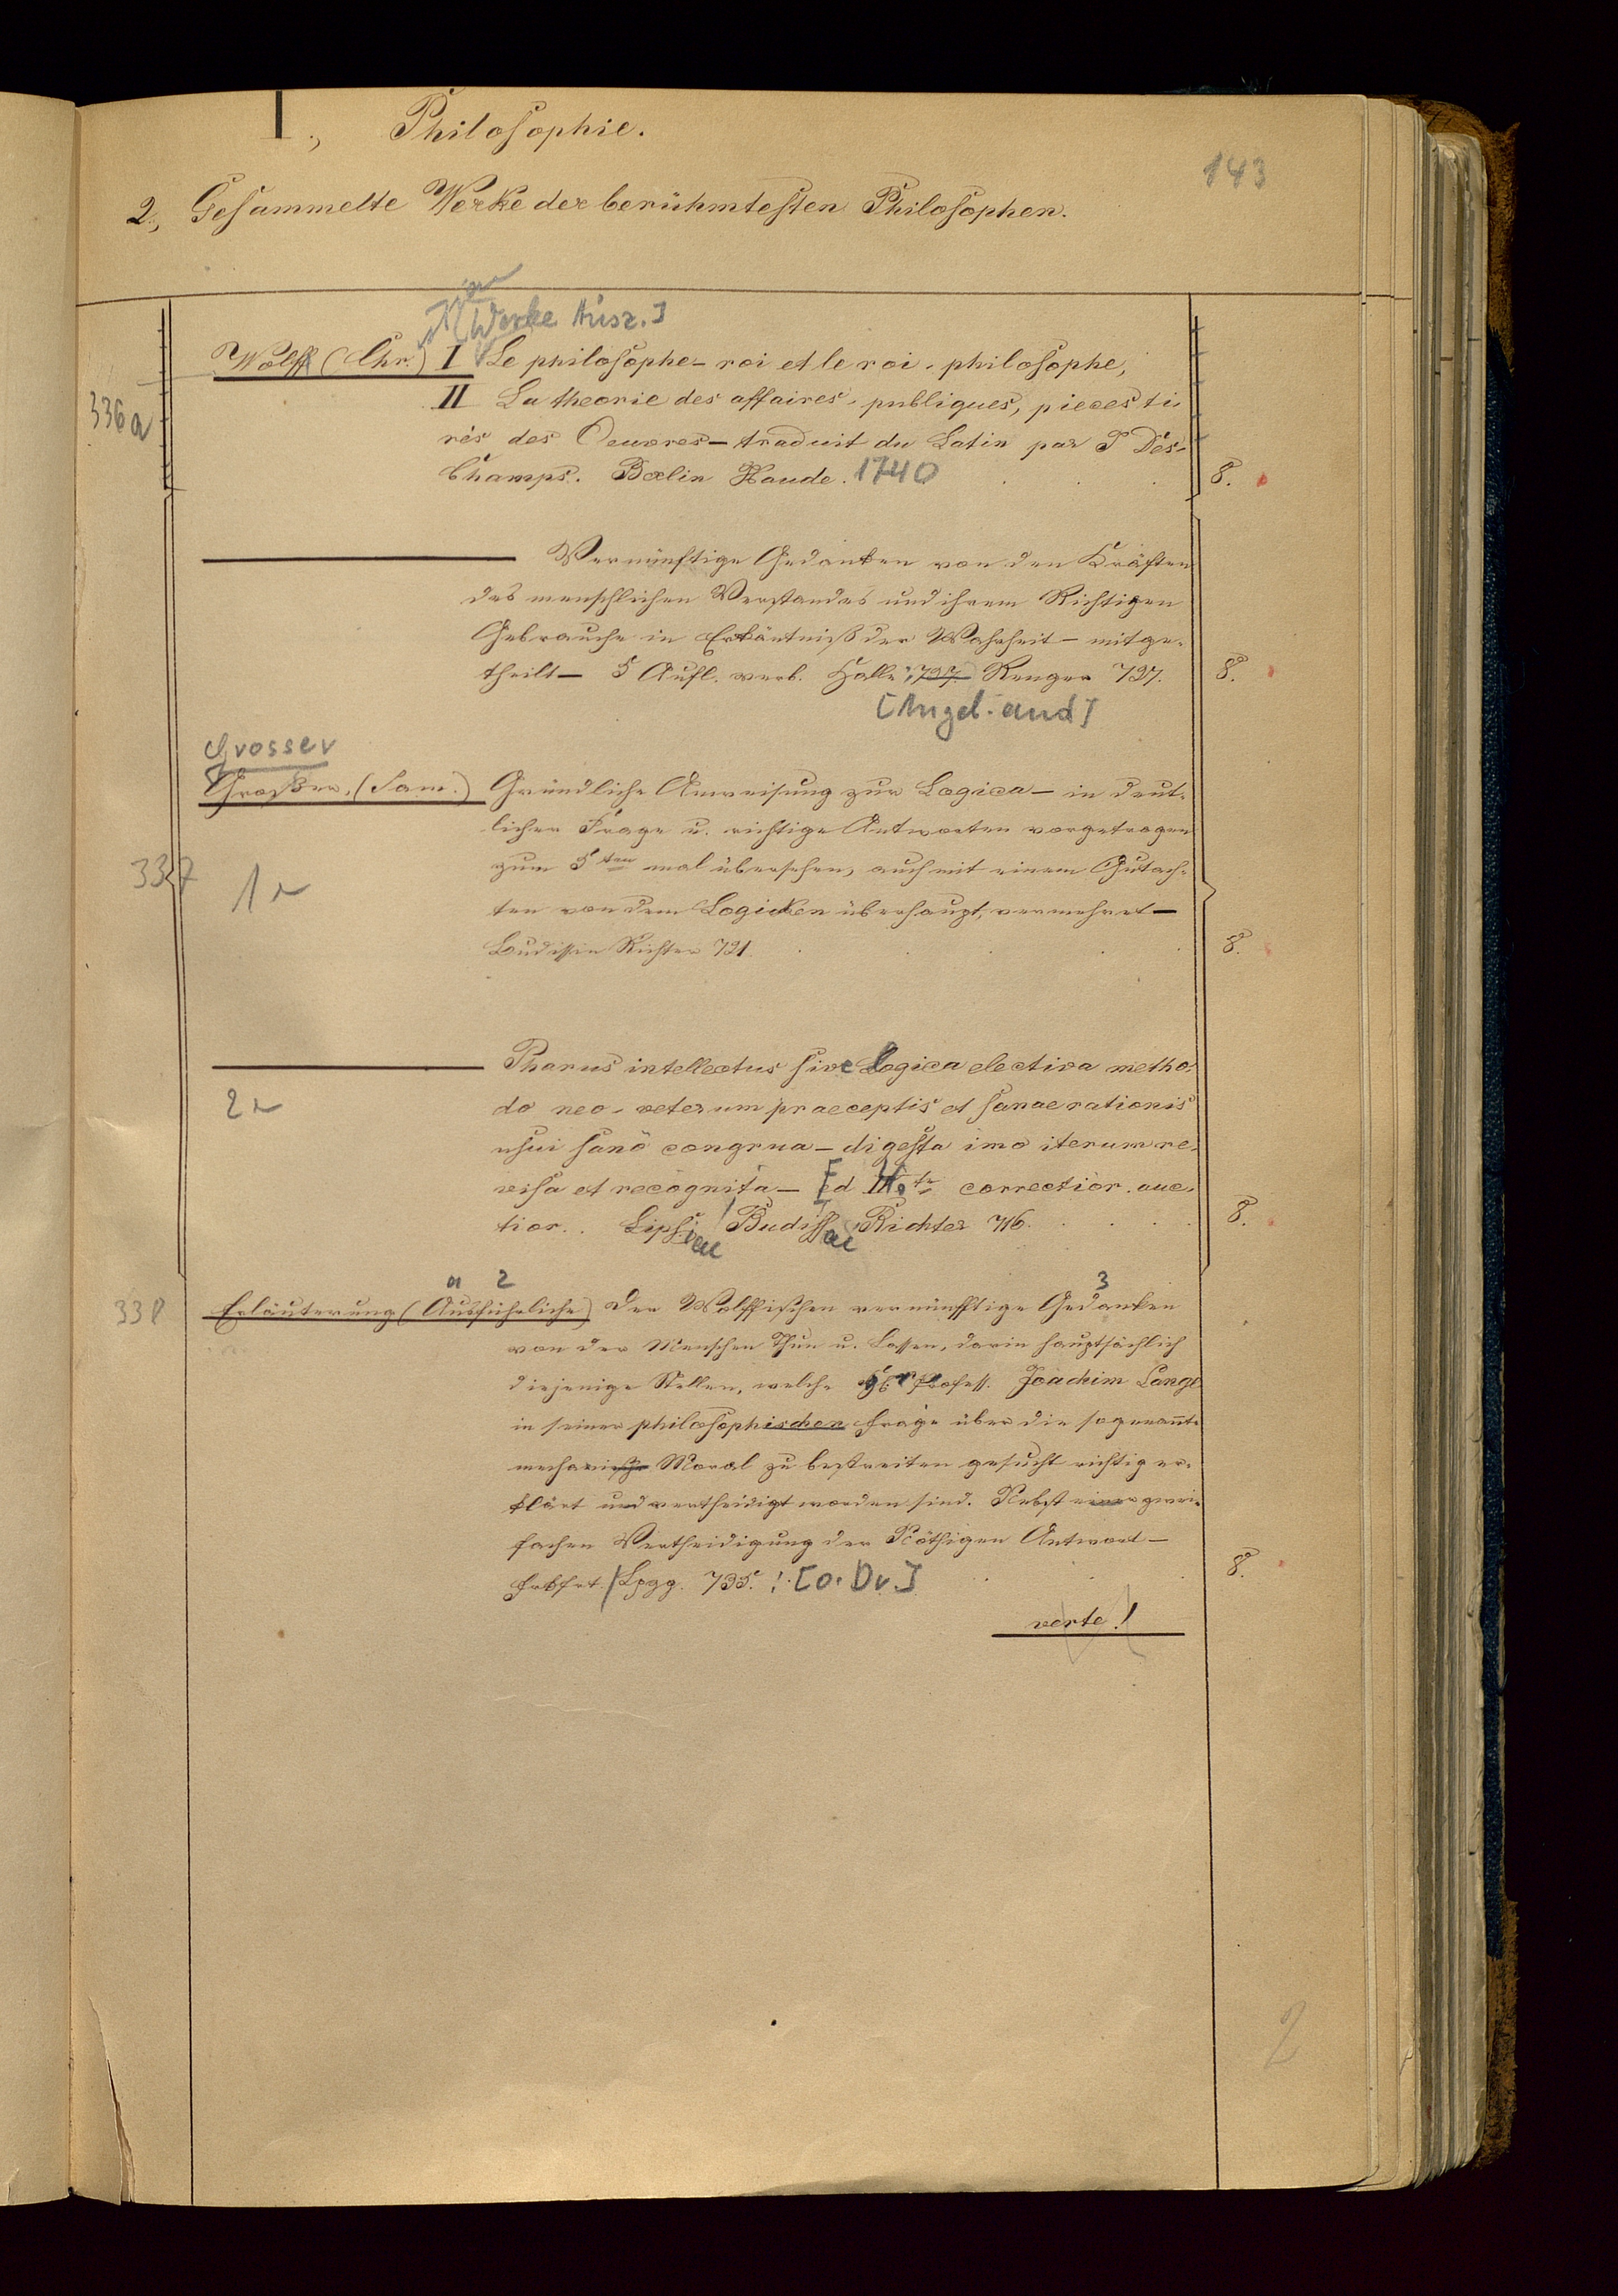 I., Philosophie.
143
2., Gesammelte Werke der berühmtesten Philosophen.
[Werke Ausz.]
Wolff (Chr.) I Le philosophe-roi et le roi-philosophe,
336a
II La theorie des affaires-publiques, pieces ti-
rés des Oeuvres - traduit du Latin par J Des-
Champs. Berlin Haude. 1740 8.
Vernünftige Gedanken von den Kräften
des menschlichen Verstandes und ihrem Richtigen
Gebrauche in Erkäntniß der Wahrheit - mitge-
theilt - 5 Aufl. verb. Halle, 727. Renger 727. 8.
[Angeb. and]
Grosser
Großer, (Sam.) Gründliche Anweisung zur Logica - in deut-
licher Frage u. richtige Antworten vorgetragen
337 1
zum 5ten mal übersehen, auch mit einem Gutach-
ten von dem Logicken überhaupt, vermehret -
Budissin Richter 721. 8.
Pharus intellectus sive Logica electiva metho-
2
do neo-veterum praeceptis et sanae rationis
usui sanò congrua - digesta imo iterum re-
visa et recognita - Ed correctior. auc-
tior. Lipsiae / Budissae Richter 716. 8.
2 3
338
Erläuterung (Ausführliche) der Wolffischen vernünfftige Gedanken
von der Menschen Thun u. Lassen, darin hauptsächlich
diejenige Stellen, welche Hr Profess. Joachim Lange
in seiner philosophischen Frage über die sogenannte
mechanische Moral zu bestreiten gesucht richtig er-
klärt und vertheidigt worden sind. Nebst einer zwei-
fachen Vertheidigung der Nöthigen Antwort -
Frkfrt / Lpzg. 735. [o. Dr.] 8.
verte!
2